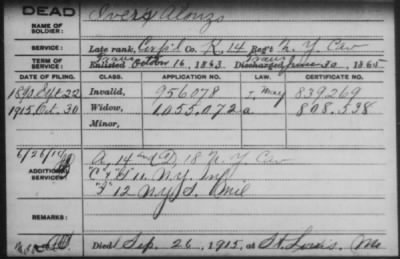 DEAD
NAME OF SOLDIER: Ivers Alonzo
SERVICE: Late rank, Corp'l Co. K, 14 Reg't N. Y. Cav
TERM OF SERVICE: Enlisted October 16, 1863 Discharged June 30, 1865
DATE OF FILING. CLASS. APPLICATION NO. LAW. CERTIFICATE NO.
Sept 22 Invalid, 956078 May 839269
1915, Oct. 30 Widow, 1.055.072 a 808.538
Minor,
ADDITIONAL SERVICES: A, 14 18 N Y Cav
"C" & 11. N.Y. Inf
12 N.Y. S. Mil
REMARKS:
Died Sep. 26, 1915, at St. Louis, Mo